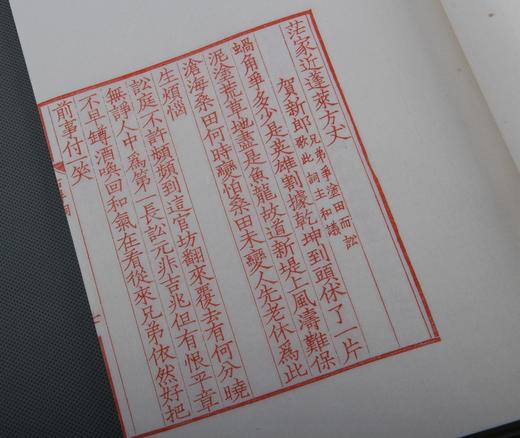 茫家近蓬萊方丈
賀新郎
兄弟爭塗田而訟
歌此詞主和議
蝸角爭多少是英雄割據乾坤到頭休了一片
泥塗荒草地盡是魚龍故道新堤上風濤難保
滄海桑田何時變怕桑田未變人先老休爲此
生煩惱
訟庭不許頻頻到這官坊翻來覆去有何分曉
無諍人中爲第一長訟元非吉兆但有恨平章
不早罇酒喚回和氣在看從來兄弟依然好把
前事付一笑